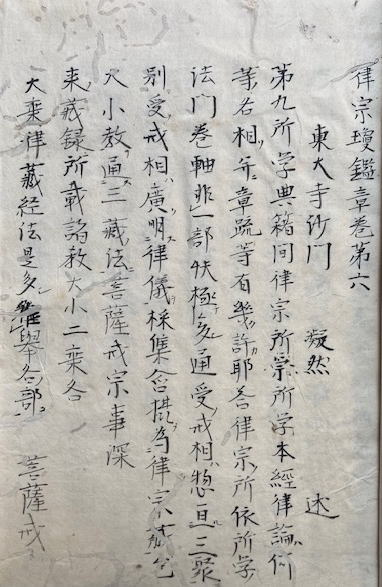 律宗瓊鑑章卷第六
東大寺沙門 凝然 述
第九所学典籍問律宗所宗所学本経律論何
等名相并章疏等有幾許耶答律宗所依所学
法門巻軸非一部帙極多通受戒相惣亘三聚
別受戒相廣明律儀採集合揲為律宗蔵
大小教通三藏法菩薩戒宗事深
来蔵録所載諸教大小二乗各
大乗律蔵経法是多 舉各部 菩薩戒